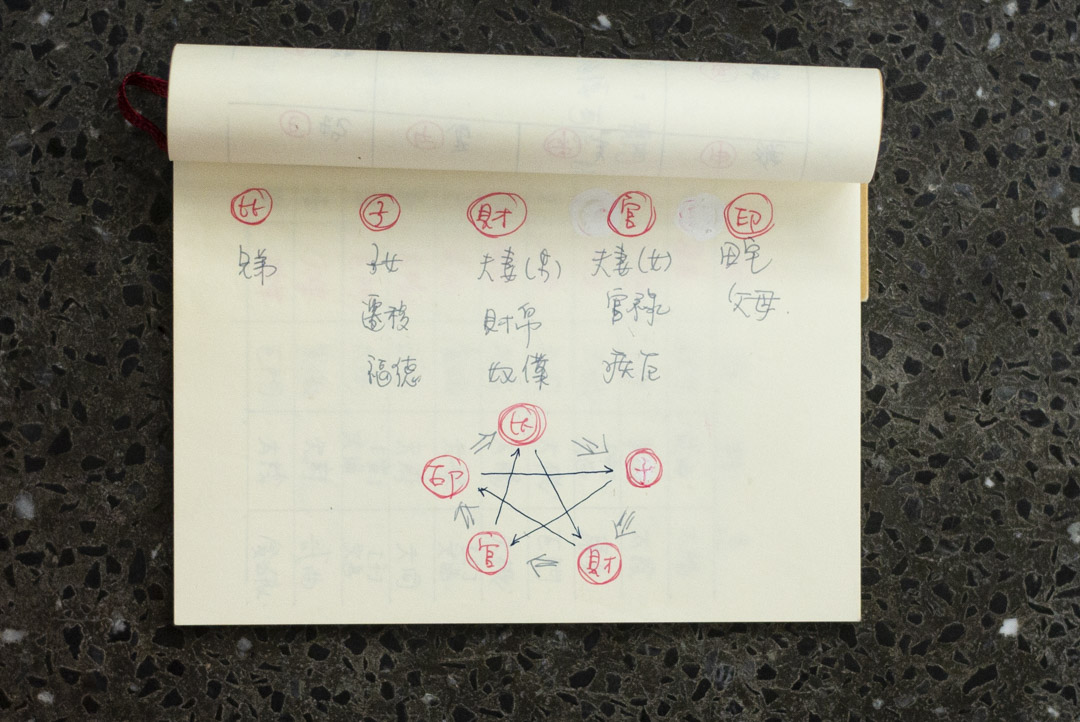 比 子 財 官 印
兄弟 子女 夫妻(男) 夫妻(女) 田宅
遷移 財帛 官祿 父母.
福德 奴僕 疾厄
比
印 子
官 財